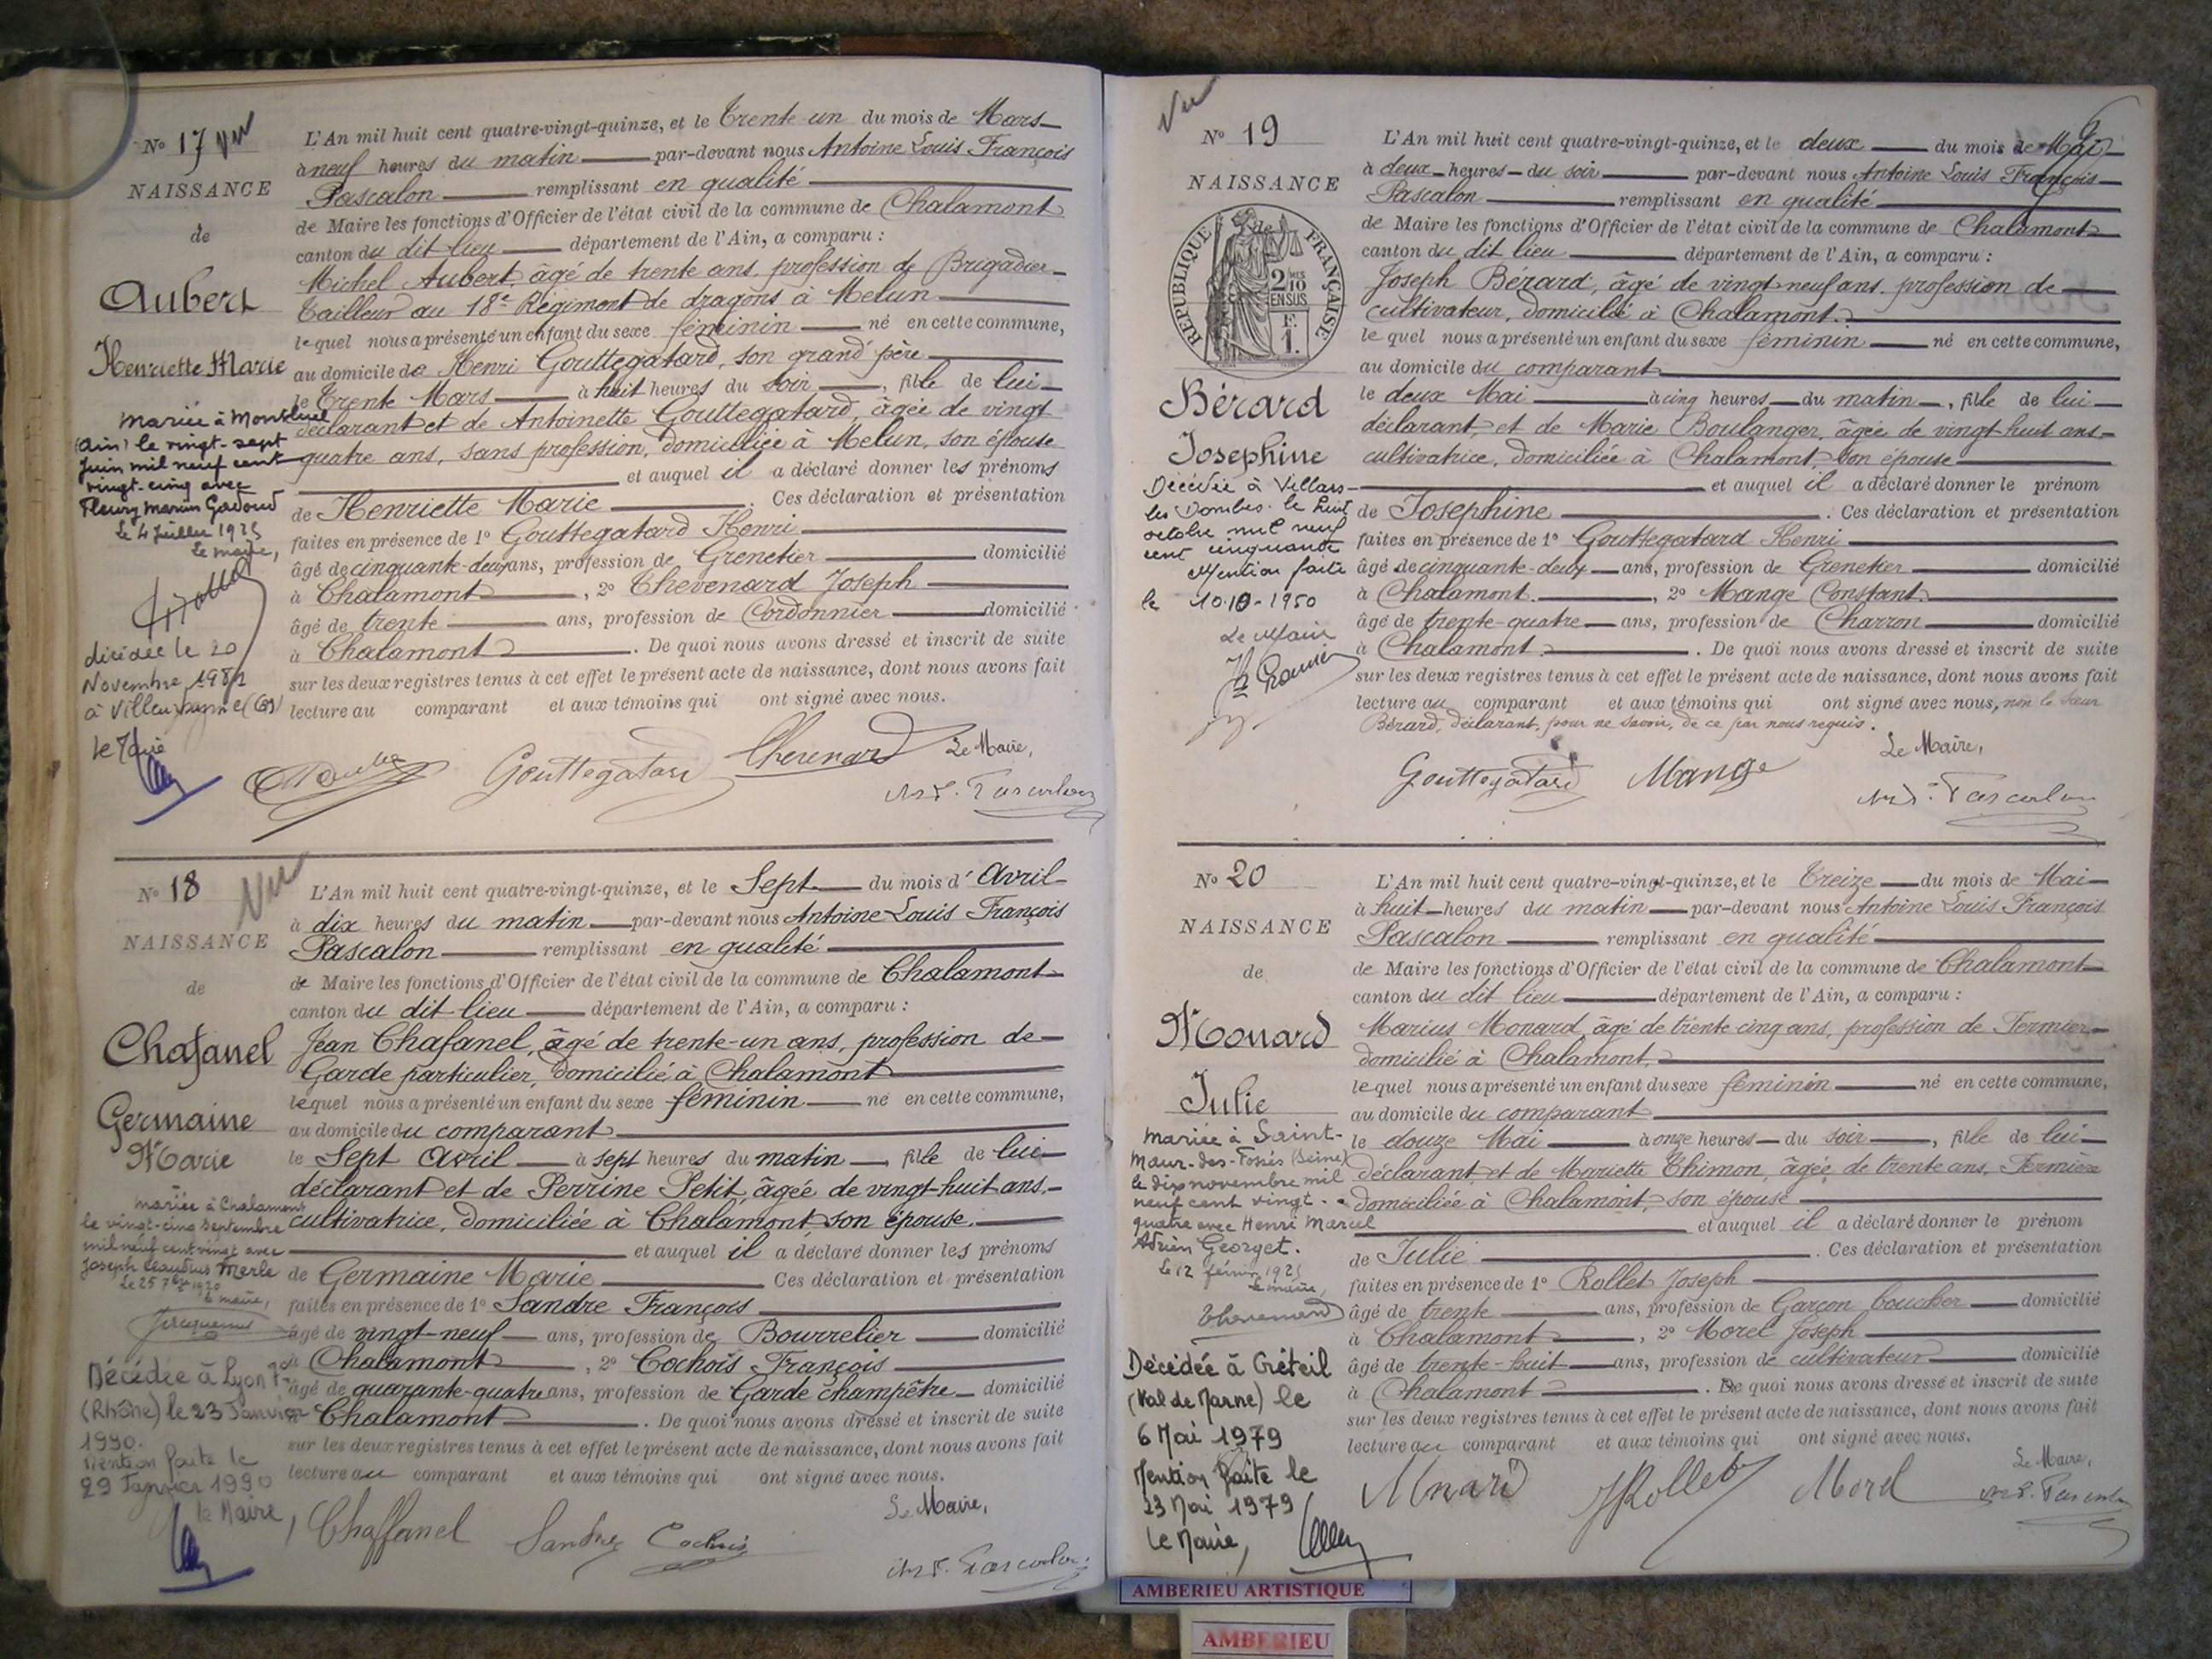 N° 17 Vu
NAISSANCE
de
Aubert
Henriette Marie
mariée à Montluel
(Ain) le vingt-sept
Juin mil neuf cent
vingt-cinq avec
Fleury Marius Gadoud
Le 4 Juillet 1925
Le maire,
décédée le 20
Novembre 1982
à Villeurbanne (69)
Le Maire
L'An mil huit cent quatre-vingt-quinze, et le Trente un du mois de Mars
à neuf heures du matin par-devant nous Antoine Louis François
Pascalon remplissant en qualité
de Maire les fonctions d'Officier de l'état civil de la commune de Chalamont
canton du dit lieu département de l'Ain, a comparu :
Michel Aubert, âgé de trente ans, profession de Brigadier
Tailleur au 18e Régiment de dragons à Melun
lequel nous a présenté un enfant du sexe féminin né en cette commune,
au domicile de Henri Gouttegatard, son grand père
le Trente Mars à huit heures du soir, fille de lui
déclarant et de Antoinette Gouttegatard, âgée de vingt
quatre ans, sans profession, domiciliée à Melun, son épouse
et auquel il a déclaré donner les prénoms
de Henriette Marie. Ces déclaration et présentation
faites en présence de 1° Gouttegatard Henri
âgé de cinquante-deux ans, profession de Grenetier domicilié
à Chalamont, 2° Thevenard Joseph
âgé de trente ans, profession de Cordonnier domicilié
à Chalamont. De quoi nous avons dressé et inscrit de suite
sur les deux registres tenus à cet effet le présent acte de naissance, dont nous avons fait
lecture au comparant et aux témoins qui ont signé avec nous.
Le Maire,
Gouttegatard Thevenard
N° 18 Vu
NAISSANCE
de
Chafanel
Germaine
Marie
mariée à Chalamont
le vingt-cinq septembre
mil neuf cent vingt avec
Joseph Claudius Merle
Le 25 7bre 1920
Le maire,
Décédée à Lyon 7e
(Rhône) le 23 Janvier
1990.
Mention faite le
29 Janvier 1990
le Maire,
L'An mil huit cent quatre-vingt-quinze, et le Sept du mois d'Avril
à dix heures du matin par-devant nous Antoine Louis François
Pascalon remplissant en qualité
de Maire les fonctions d'Officier de l'état civil de la commune de Chalamont
canton du dit lieu département de l'Ain, a comparu :
Jean Chafanel, âgé de trente-un ans, profession de
Garde particulier, domicilié à Chalamont
lequel nous a présenté un enfant du sexe féminin né en cette commune,
au domicile du comparant
le Sept Avril à sept heures du matin, fille de lui
déclarant et de Perrine Petit, âgée de vingt-huit ans,
cultivatrice, domiciliée à Chalamont son épouse.
et auquel il a déclaré donner les prénoms
de Germaine Marie Ces déclaration et présentation
faites en présence de 1° Sandre François
âgé de vingt-neuf ans, profession de Bourrelier domicilié
à Chalamont, 2° Cochois François
âgé de quarante-quatre ans, profession de Garde champêtre domicilié
à Chalamont. De quoi nous avons dressé et inscrit de suite
sur les deux registres tenus à cet effet le présent acte de naissance, dont nous avons fait
lecture au comparant et aux témoins qui ont signé avec nous.
Le Maire,
Chaffanel Sandre Cochois
Vu
N° 19
NAISSANCE
de
RÉPUBLIQUE FRANÇAISE
2/10 EN SUS
F. 1.
Bérard
Josephine
Décédée à Villars-
les Dombes le huit
octobre mil neuf
cent cinquante
Mention faite
le 10-10-1950
Le Maire
6
L'An mil huit cent quatre-vingt-quinze, et le deux du mois de Mai
à deux heures du soir par-devant nous Antoine Louis François
Pascalon remplissant en qualité
de Maire les fonctions d'Officier de l'état civil de la commune de Chalamont
canton du dit lieu département de l'Ain, a comparu :
Joseph Bérard, âgé de vingt-neuf ans, profession de
cultivateur, domicilié à Chalamont.
lequel nous a présenté un enfant du sexe féminin né en cette commune,
au domicile du comparant
le deux Mai à cinq heures du matin, fille de lui
déclarant, et de Marie Boulanger, âgée de vingt-huit ans
cultivatrice, domiciliée à Chalamont, son épouse
et auquel il a déclaré donner le prénom
de Josephine. Ces déclaration et présentation
faites en présence de 1° Gouttegatard Henri
âgé de cinquante-deux ans, profession de Grenetier domicilié
à Chalamont., 2° Mange Constant.
âgé de trente-quatre ans, profession de Charron domicilié
à Chalamont. De quoi nous avons dressé et inscrit de suite
sur les deux registres tenus à cet effet le présent acte de naissance, dont nous avons fait
lecture au comparant et aux témoins qui ont signé avec nous, non le sieur
Bérard, déclarant, pour ne savoir, de ce par nous requis.
Le Maire,
Gouttegatard Mange
N° 20
NAISSANCE
de
Monard
Julie
mariée à Saint-
Maur-des-Fossés (Seine)
le dix novembre mil
neuf cent vingt-
quatre avec Henri Marcel
Adrien Georget.
Le 12 février 1925
Le maire,
Décédée à Créteil
(Val de Marne) le
6 Mai 1979
Mention faite le
23 Mai 1979
Le Maire,
L'An mil huit cent quatre-vingt-quinze, et le Treize du mois de Mai
à huit heures du matin par-devant nous Antoine Louis François
Pascalon remplissant en qualité
de Maire les fonctions d'Officier de l'état civil de la commune de Chalamont
canton du dit lieu département de l'Ain, a comparu :
Marius Monard, âgé de trente-cinq ans, profession de Fermier
domicilié à Chalamont,
lequel nous a présenté un enfant du sexe féminin né en cette commune,
au domicile du comparant
le douze Mai à onze heures du soir, fille de lui
déclarant, et de Mariette Thimon, âgée, de trente ans, Fermière
domiciliée à Chalamont, son épouse
et auquel il a déclaré donner le prénom
de Julie. Ces déclaration et présentation
faites en présence de 1° Rollet Joseph
âgé de trente ans, profession de Garçon boucher domicilié
à Chalamont, 2° Morel Joseph
âgé de trente-huit ans, profession de cultivateur domicilié
à Chalamont. De quoi nous avons dressé et inscrit de suite
sur les deux registres tenus à cet effet le présent acte de naissance, dont nous avons fait
lecture au comparant et aux témoins qui ont signé avec nous.
Le Maire,
Monard JRollet Morel
AMBERIEU ARTISTIQUE
AMBERIEU